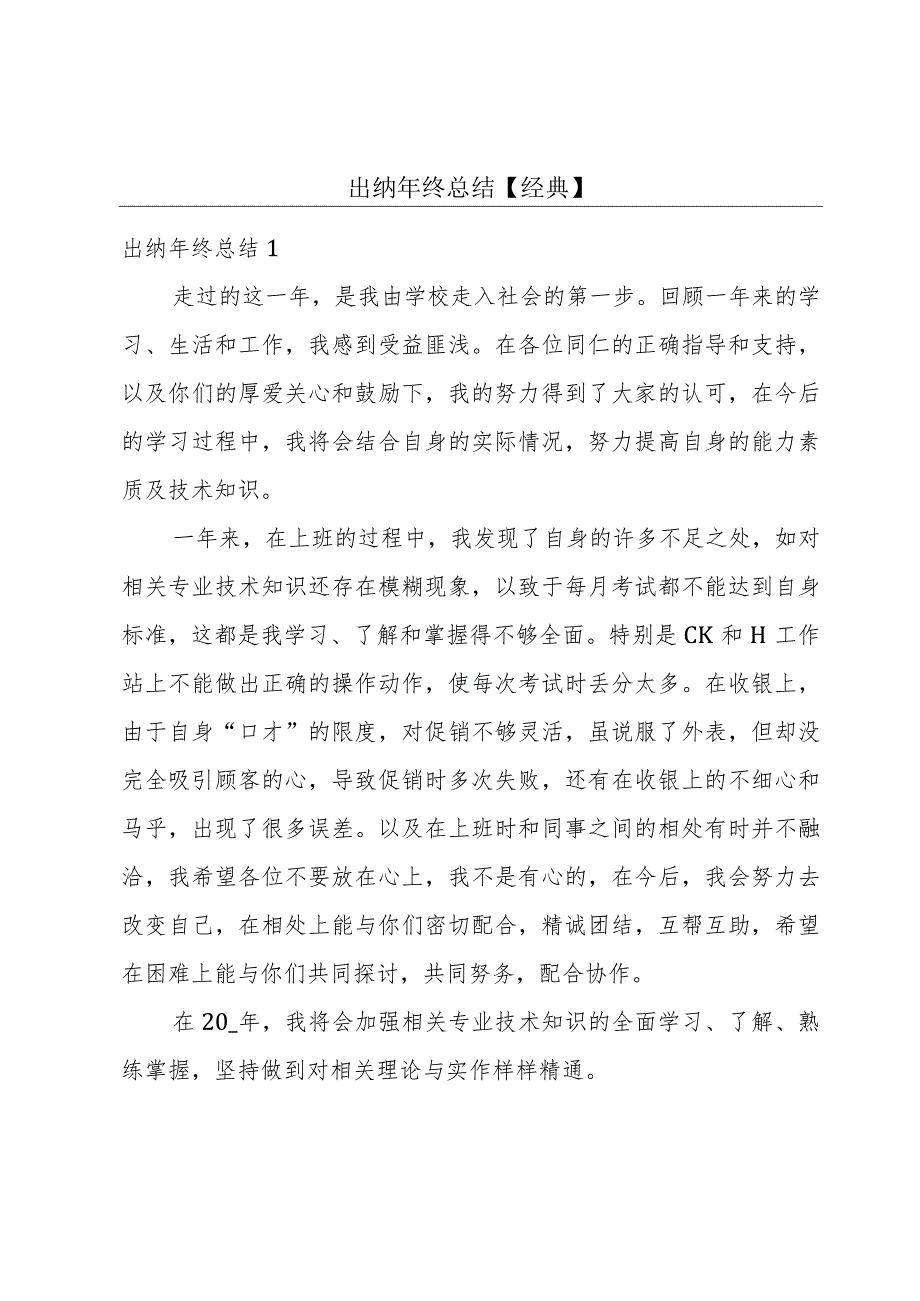 出纳年终总结【经典】
出纳年终总结 1
走过的这一年，是我由学校走入社会的第一步。回顾一年来的学
习、生活和工作，我感到受益匪浅。在各位同仁的正确指导和支持，
以及你们的厚爱关心和鼓励下，我的努力得到了大家的认可，在今后
的学习过程中，我将会结合自身的实际情况，努力提高自身的能力素
质及技术知识。
一年来，在上班的过程中，我发现了自身的许多不足之处，如对
相关专业技术知识还存在模糊现象，以致于每月考试都不能达到自身
标准，这都是我学习、了解和掌握得不够全面。特别是 CK 和 H 工作
站上不能做出正确的操作动作，使每次考试时丢分太多。在收银上，
由于自身“口才”的限度，对促销不够灵活，虽说服了外表，但却没
完全吸引顾客的心，导致促销时多次失败，还有在收银上的不细心和
马乎，出现了很多误差。以及在上班时和同事之间的相处有时并不融
洽，我希望各位不要放在心上，我不是有心的，在今后，我会努力去
改变自己，在相处上能与你们密切配合，精诚团结，互帮互助，希望
在困难上能与你们共同探讨，共同努务，配合协作。
在 20_年，我将会加强相关专业技术知识的全面学习、了解、熟
练掌握，坚持做到对相关理论与实作样样精通。